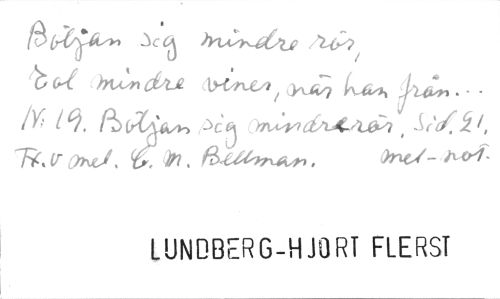 Böljan sig mindre rör,
Eol mindre viner, när han från...
N: 19. Böljan sig mindre rör, Sid. 21.
Tx. o mel. C. M. Bellman. mel-not.
LUNDBERG-HJORT FLERST